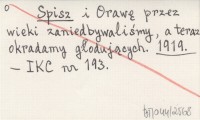 Spisz i Orawę przez
wieki zaniedbywaliśmy, a teraz
okradamy głodujących. 1919.
– IKC nr 193.